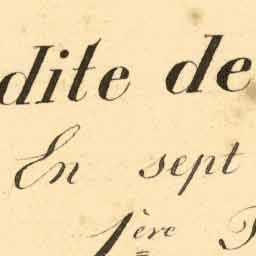 dite de
En sept
1ère